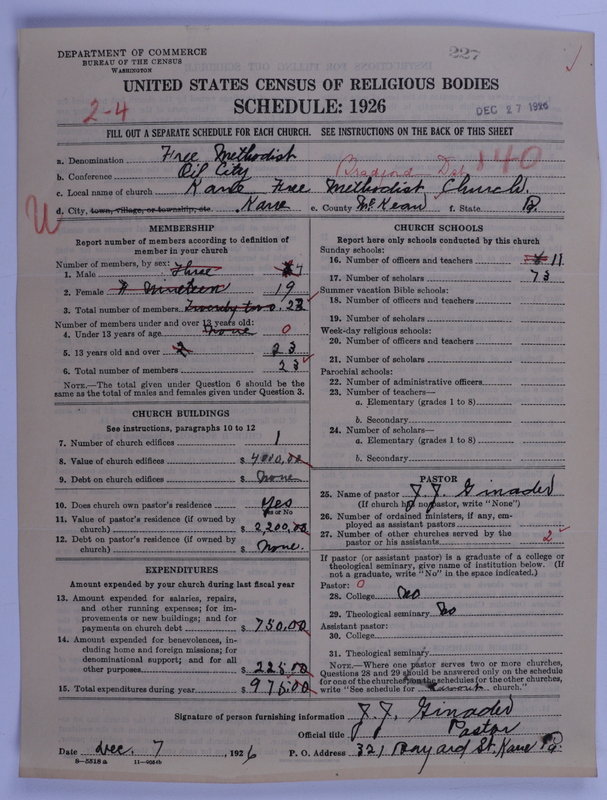 DEPARTMENT OF COMMERCE
BUREAU OF THE CENSUS
WASHINGTON
227
UNITED STATES CENSUS OF RELIGIOUS BODIES
SCHEDULE: 1926
2-4
DEC 27 1926
FILL OUT A SEPARATE SCHEDULE FOR EACH CHURCH. SEE INSTRUCTIONS ON THE BACK OF THIS SHEET
a. Denomination Free Methodist
b. Conference Oil City Bradford Dst 140
c. Local name of church Kane Free Methodist Church.
d. City, town, village, or township, etc. Kane e. County McKean f. State Pa.
W
MEMBERSHIP
Report number of members according to definition of member in your church
Number of members, by sex:
1. Male Three
2. Female Nineteen 19
3. Total number of members Twenty two.
Number of members under and over 13 years old:
4. Under 13 years of age none 0
5. 13 years old and over 2 23
6. Total number of members 23
NOTE.—The total given under Question 6 should be same as the total of males and females given under Question 3.
CHURCH BUILDINGS
See instructions, paragraphs 10 to 12
7. Number of church edifices 1
8. Value of church edifices $
9. Debt on church edifices $ None
10. Does church own pastor's residence Yes
Yes or No
11. Value of pastor's residence (if owned by church) $ 2,200.00
12. Debt on pastor's residence (if owned by church) $ None.
EXPENDITURES
Amount expended by your church during last fiscal year
13. Amount expended for salaries, repairs, and other running expenses; for improvements or new buildings; and for payments on church debt $ 750.00
14. Amount expended for benevolences, including home and foreign missions; for denominational support; and for all other purposes $ 225.00
15. Total expenditures during year $ 975.00
CHURCH SCHOOLS
Report here only schools conducted by this church
Sunday schools:
16. Number of officers and teachers 11
17. Number of scholars 73
Summer vacation Bible schools:
18. Number of officers and teachers
19. Number of scholars
Week-day religious schools:
20. Number of officers and teachers
21. Number of scholars
Parochial schools:
22. Number of administrative officers
23. Number of teachers—
a. Elementary (grades 1 to 8)
b. Secondary
24. Number of scholars—
a. Elementary (grades 1 to 8)
b. Secondary
PASTOR
25. Name of pastor J. J. Ginader
(If church has no pastor, write "None")
26. Number of ordained ministers, if any, employed as assistant pastors
27. Number of other churches served by the pastor or his assistants 2
If pastor (or assistant pastor) is a graduate of a college or theological seminary, give name of institution below. (If not a graduate, write "No" in the space indicated.)
Pastor: 0
28. College No
29. Theological seminary No
Assistant pastor:
30. College
31. Theological seminary
NOTE.—Where one pastor serves two or more churches, Questions 28 and 29 should be answered only on the schedule for one of the churches; on the schedules for the other churches, write "See schedule for church."
Signature of person furnishing information J. J. Ginader
Official title Pastor
Date Dec. 7, 1926 P. O. Address 321 Bayard St. Kane Pa.
8—5518 a 11—9084b